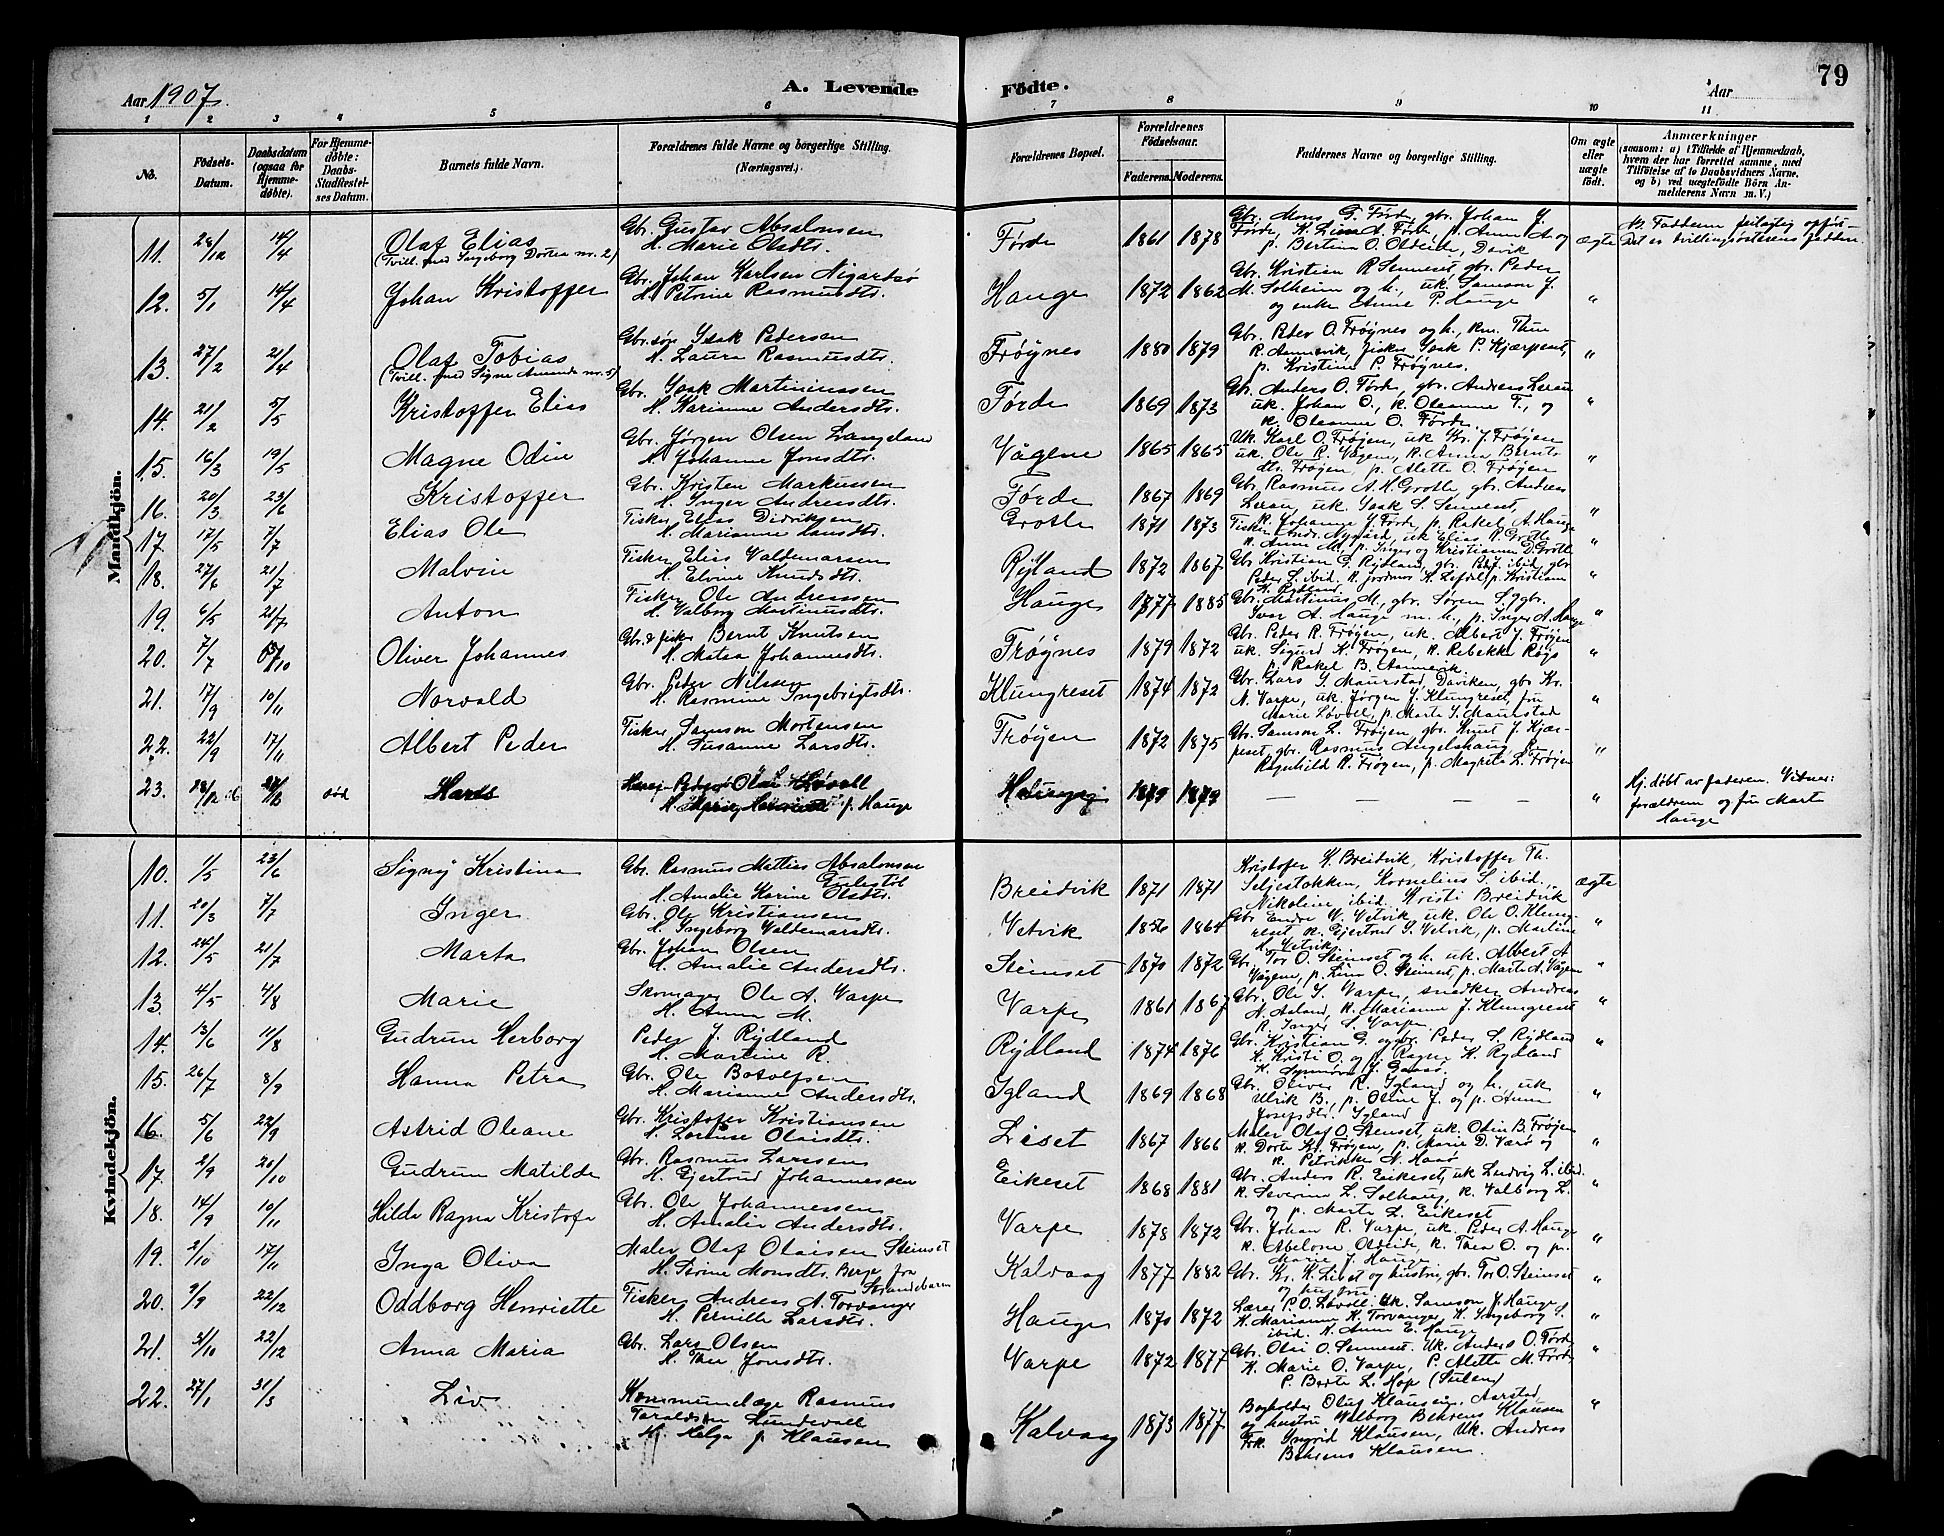 Aar 1907.
A. Levende
Fødte.
Aar
79
1 2 3 4 5 6 7 8 9 10 11
No.
Fødsels-
Datum.
Daabsdatum
(ogsaa for
Hjemme-
døbte).
For Hjemme-
døbte:
Daabs-
Stadfæstel-
ses Datum.
Barnets fulde Navn.
Forældrenes fulde Navne og borgerlige Stilling.
(Næringsvei.)
Forældrenes Bopæl.
Forældrenes
Fødselsaar.
Faderens.
Moderens.
Faddernes Navne og borgerlige Stilling.
Om ægte
eller
uægte
født.
Anmærkninger
(saasom: a) i Tilfælde af Hjemmedaab,
hvem der har forrettet samme, med
Tilføielse af to Daabsvidners Navne.
og b) ved uægtefødte Børn An-
melderens Navn m. V.)
Mandkjön.
11. 28/12 14/4 Olaf Elias
(Tvill. med Ingeborg Dortea nr. 2)
Gbr. Gustav Absalonsen
H. Marie Olsdtr.
Førde 1861 1878
Gbr. Mons G. Førde, gbr. Johan J.
Førde, K. Lina A. Førde, p. Anna A. og
p. Bertina O. Oldeide, Davik
ægte
12. 5/1 14/4 Johan Kristoffer
Gbr. Johan Karlsen Nigardsø
H. Petrine Rasmusdtr.
Hauge 1872 1862
Gbr. Kristian R. Senneset, gbr. Peder
M. Solheim og h., uk. Samson J.
og enke Anne P. Hauge
"
13. 27/2 21/4 Olaf Tobias
(Tvill. med Signe Amanda nr. 5)
Gbr.søn Isak Pedersen
H. Laura Rasmusdtr.
Frøynes 1880 1879
Gbr. Peder O. Frøynes og h., km. Thue
R. Annevik, fisker Isak P. Kjærpeset,
p. Kristine P. Frøynes.
"
14. 21/2 5/5 Kristoffer Elias
Gbr. Isak Martinussen
H. Karianne Andersdtr.
Førde 1869 1873
Gbr. Anders O. Førde, gbr. Andreas Leran
uk. Johan O., k. Oleanne T., og
k. Oleanne O. Førde.
"
15. 16/3 19/5 Magne Odin
Gbr. Jørgen Olsen Langeland
H. Johanne Jonsdtr.
Vågene 1865 1865
Uk. Karl O. Frøyen, uk. Kr. J. Frøyen
uk. Ole R. Vågene, k. Anna Bernts-
dtr. Frøyen, p. Alette O. Frøyen
"
16. 20/3 23/6 Kristoffer
Gbr. Kristen Markussen
H. Inger Andreasdtr.
Førde 1867 1869
Gbr. Rasmus A. H. Grotle, gbr. Andreas
Leran, uk. Isak S. Senneset,
K. Johanne J. Førde, p. Rakel A. Hauge
"
17. 17/5 7/7 Elias Ole
Fisker Elias Didriksen
H. Marianne Larsdtr.
Grotle 1871 1873
Fisker Andr. Nygård, uk. Elias R. Grotle
k. Anne M., p. Inger og Kristianne D. Grotle
"
18. 27/6 21/7 Malvin
Fisker Elias Valdemarsen
H. Elvine Knudsdtr.
Rydland 1872 1867
Gbr. Kristian G. Rydland, gbr. Ped. J. ibid, gbr
Peder S. ibid. K. jordmor K. Lefdal, p. Kristiane
K. Rydland
"
19. 6/5 21/7 Anton
Fisker Ole Andreassen
H. Valborg Martinusdtr.
Hauge 1877 1885
Gbr. Martinus M., gbr. Søren S., gbr.
Ivar A. Hauge m. h., p. Inger A. Hauge
"
20. 7/7 Oliver Johannes
Gbr. & fisker Bernt Knutsen
H. Matea Johannesdtr.
Frøynes 1879 1872
Gbr. Peder R. Frøyen, uk. Albert J. Frøyen
uk. Sigurd K. Frøyen, k. Rebekka Røys
p. Rakel B. Annevik
"
21. 17/9 10/11 Norvald
Gbr. Peder Nilssen
H. Rasmine Ingebrigtsdtr.
Klungreset 1874 1872
Gbr. Lars I. Maurstad, Daviken, gbr. Kr.
N. Varpe, uk. Jørgen J. Klungreset, fru
Marie Løvoll, p. Marta I. Maurstad
"
22. 22/9 17/11 Albert Peder
Fisker Samson Mortensen
H. Susanne Larsdtr.
Frøyen 1872 1875
Gbr. Samson L. Frøyen, gbr. Knut J. Kjær-
peset, gbr. Rasmus Angelshaug, fru
Ragnhild R. Frøyen, p. Magreta L. Frøyen
"
23. død
H. Marie Henriette f. Hauge
1879 1879
— — — — — —
"
Hj. døbt av faderen. Vidner:
forældrene og fru Marta
Hauge
Kvindekjön.
10. 1/5 23/6 Signy Kristina
Gbr. Rasmus Mattias Absalonsen
H. Amalie Karine Olsdtr.
Breidvik 1871 1871
Kristofer K. Breidvik, Kristoffer Th.
Seljestokken, Kornelius S. ibid.,
Nikoline ibid. Kristi Breidvik
ægte
11. 20/3 7/7 Inger
Gbr. Ole Kristiansen
H. Ingeborg Valdemarsdtr.
Vetvik 1856 1864
Gbr. Endre W. Vetvik, uk. Ole O. Klung-
reset k. Gjertrud S. Vetvik, p. Martine
H. Vetvik
"
12. 24/5 21/7 Marta
Gbr. Johan Olsen
H. Amalie Andersdtr.
Steinset 1870 1872
Gbr. Tor O. Steinset og h. uk. Albert A
Vågene, p. Lina O. Steinset, p. Marta A. Vågene
"
13. 4/5 4/8 Marie
Skomager Ole A. Varpe
H. Anna M.
Varpe 1861 1867
Gbr. Ole I. Varpe, snedker Andreas
N. Aaland, k. Marianne J. Klungreset
k. Inger S. Varpe
"
14. 13/6 11/8 Gudrun Herborg
Peder J. Rydland
H. Martine R.
Rydland 1874 1876
Gbr. Kristian G. og gbr. Peder S. Rydland
K. Kristi O. og p. Ragna K. Rydland
"
15. 26/7 8/9 Hanna Petra
Gbr. Ole Botolfsen
H. Marianne Andersdtr.
Igland 1869 1868
Gbr. Oliver R. Igland og h., uk
Ulrik B., p. Oline J. og p. Anna
Josefsdtr. Igland
"
16. 5/6 22/9 Astrid Oleane
Gbr. Kristofer Kristiansen
H. Lovise Olaisdtr.
Liset 1867 1866
Maler Olaf O. Steinset, uk. Odin B. Frøyen
k. Dorte Kr. Frøyen, p. Marie D. Værø og
k. Petrikke N. Haasø
"
17. 2/9 20/10 Gudrun Matilde
Gbr. Rasmus Larssen
H. Gjertrud Johannessen
Eikeset 1868 1881
Gbr. Anders R. Eikeset, uk Ludvig L. ibid.
k. Severine L. Solhaug, k. Valborg L.
og p. Marta L. Eikeset
"
18. 14/9 10/11 Hilda Ragna Kristofa
Gbr. Ole Johannessen
H. Amalia Andersdtr.
Varpe 1878 1872
Gbr. Johan R. Varpe, uk. Peder A. Hauge
k. Abelone Oldeide, k. Thea O. og p.
Marie J. Hauge
"
19. 2/10 17/11 Inga Oliva
Maler Olaf Olaisen Steinset
H. Sirine Monsdtr. Berge fra
Strandebarm
Kalvaag 1877 1882
Gbr. Kr. K. Liset og hustru, gbr. Tor O. Steinset
og hustru
"
20. 9/9 22/12 Oddborg Henriette
Fisker Andreas A. Torvanger
H. Pernille Larsdtr.
Hauge 1870 1872
Lærer P. O. Løvoll, Uk. Samson J. Hauge,
K. Marianne K. Torvanger, K. Ingeborg S.
ibid. K. Anna E. Hauge
"
21. 31/10 22/12 Anna Maria
Gbr. Lars Olsen
H. Thea Jonsdtr.
Varpe 1872 1877
Gbr. Olai O. Senneset. Uk. Anders O. Førde
K. Marie O. Varpe, P. Alette M. Førde
P. Berte L. Hop (Sulen)
"
22. 27/1 31/3 Liv
Kommunelæge Rasmus
Taraldsen Lundevall
H. Helga f. Klausen
Kalvaag 1873 1877
Bogholder Oluf Klausen, Aarstad
og hustru Valborg Behrens Klausen
Frk. Ingrid Klausen, Uk. Andreas
Behrens Klausen
"